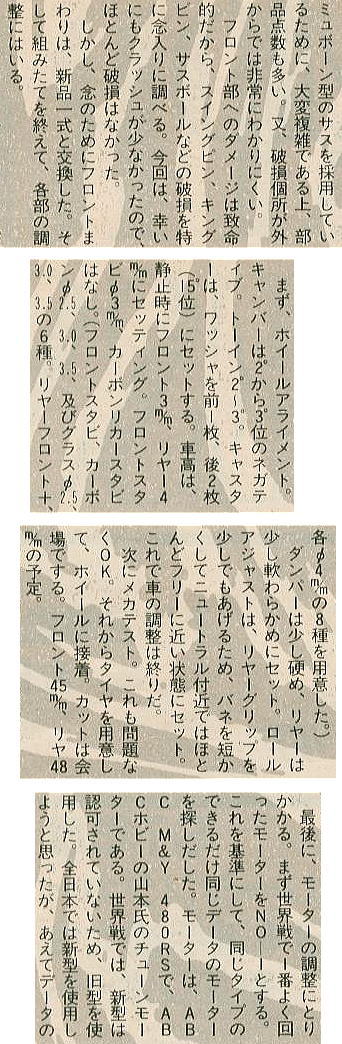 ミュボーン型のサスを採用してい
るために、大変複雑である上、部
品点数も多い。又、破損個所が外
からでは非常にわかりにくい。
フロント部へのダメージは致命
的だから、スイングピン、キング
ピン、サスボールなどの破損を特
に念入りに調べる。今回は、幸い
にもクラッシュが少なかったので、
ほとんど破損はなかった。
しかし、念のためにフロントま
わりは、新品一式と交換した。そ
して組みたてを終えて、各部の調
整にはいる。
まず、ホイールアライメント。
キャンバーは2°から3°位のネガテ
ィブ。トーイン2°〜3°。キャスタ
ーは、ワッシャを前1枚、後2枚
(15°位)にセットする。車高は、
静止時にフロント3㎜、リヤー4
㎜にセッティング。フロントスタ
ビφ3㎜、カーボンリカースタビ
はなし。(フロントスタビ、カーボ
ンφ2.5、3.0、3.5、及びグラスφ2.5、
3.0、3.5の6種。リヤーフロント+、
各φ4㎜の8種を用意した。)
ダンパーは少し硬め、リヤーは
少し軟わらかめにセット。ロール
アジャストは、リヤーグリップを
少しでもあげるため、バネを短か
くしてニュートラル付近ではほと
んどフリーに近い状態にセット。
これで車の調整は終りだ。
次にメカテスト。これも問題な
くOK。それからタイヤを用意し
て、ホイールに接着。カットは会
場でする。フロント45㎜、リヤ48
㎜の予定。
最後に、モーターの調整にとり
かかる。まず世界戦で1番よく回
ったモーターをNO—1とする。
これを基準にして、同じタイプの
できるだけ同じデータのモーター
を探しだした。モーターは、AB
C M&Y 480RSで、AB
Cホビーの山本氏のチューンモー
ターである。世界戦では、新型は
認可されていないため、旧型を使
用した。全日本では新型を使用し
ようと思ったが、あえてデータの